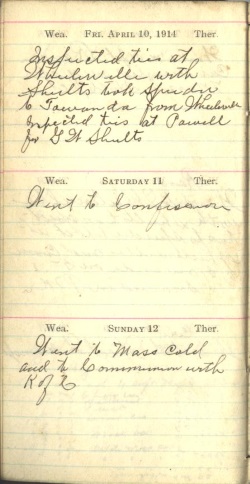 Wea. FRI. APRIL 10, 1914 Ther.
Inspected ties at
Wheelerville with
Shults took speeder
to Towanda from Wheelerville
Inspected ties at Powell
for G W Shults
Wea. SATURDAY 11 Ther.
Went to Confession
Wea. SUNDAY 12 Ther.
Went to Mass Cold
and to Communion with
K of C